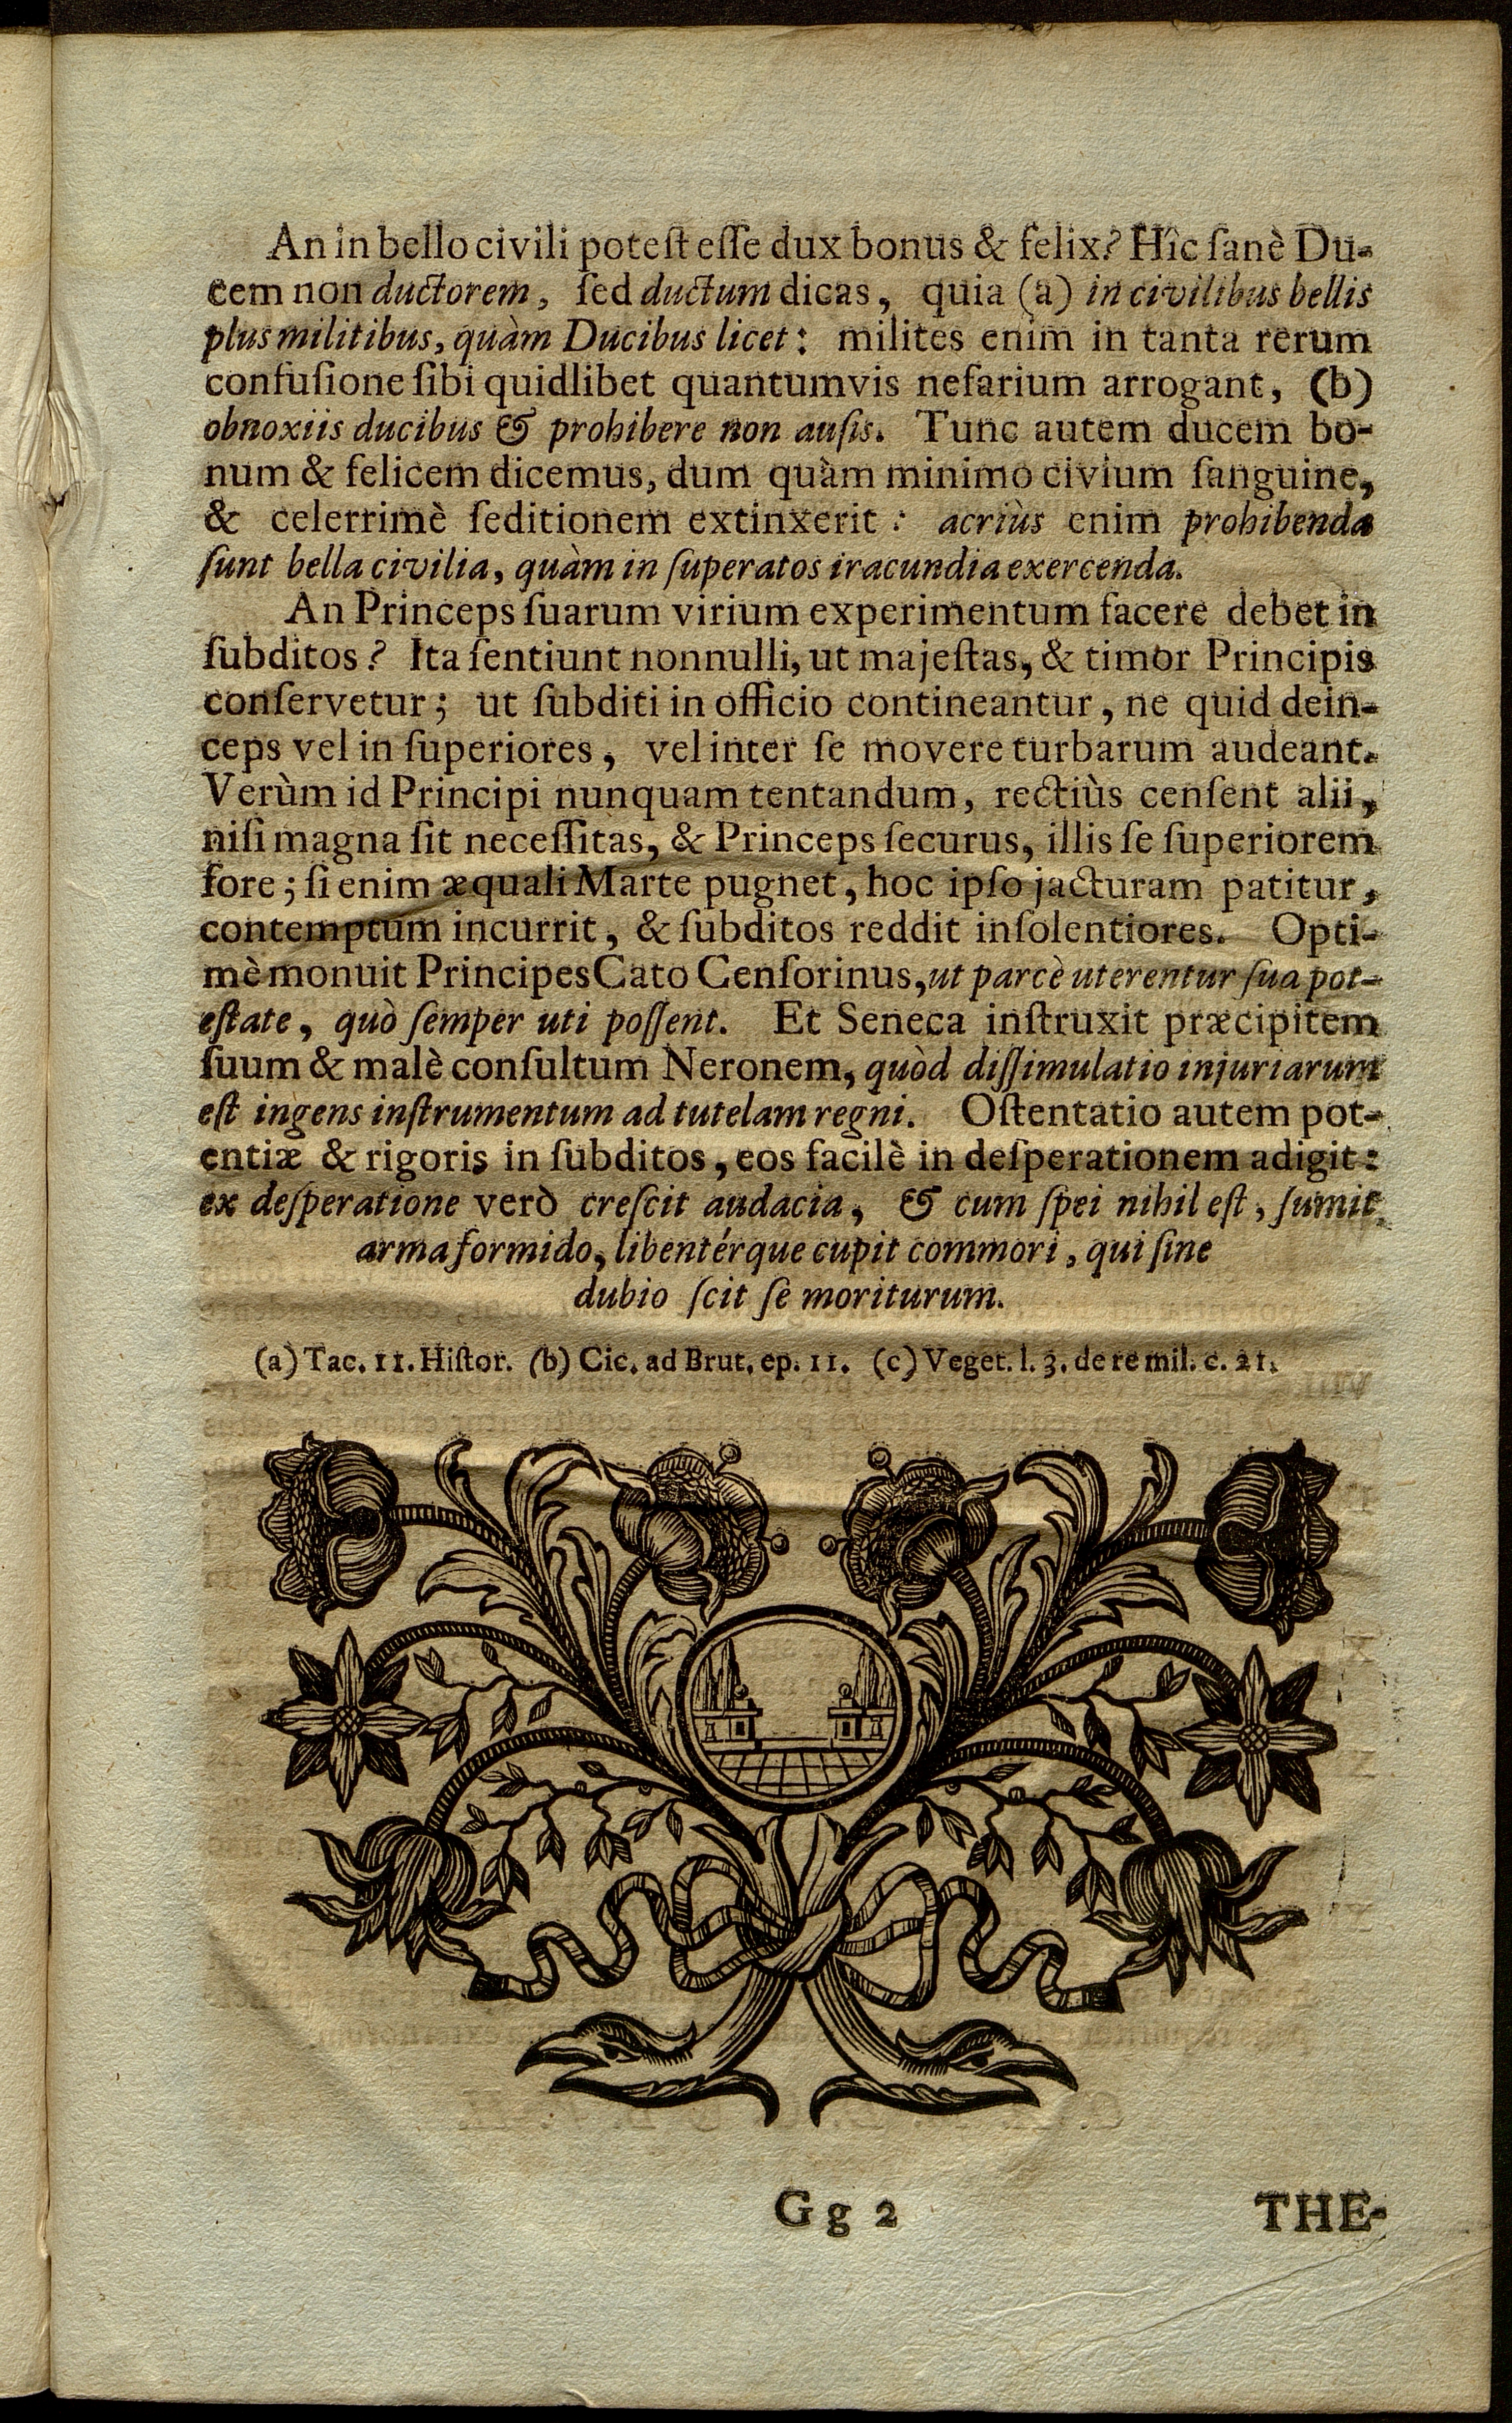 An in bello civili poteſt eſſe dux bonus & felix? Hîc ſanè Du-
cem non ductorem, ſed ductum dicas, quia (a) in civilibus bellis
plus militibus, quàm Ducibus licet: milites enim in tanta rerum
confuſione ſibi quidlibet quantumvis nefarium arrogant, (b)
obnoxiis ducibus & prohibere non auſis. Tunc autem ducem bo-
num & felicem dicemus, dum quàm minimo civium ſanguine,
& celerrimè ſeditionem extinxerit: acriùs enim prohibenda
ſunt bella civilia, quàm in ſuperatos iracundia exercenda.
An Princeps ſuarum virium experimentum facere debet in
ſubditos? Ita ſentiunt nonnulli, ut majeſtas, & timor Principis
conſervetur; ut ſubditi in officio contineantur, ne quid dein-
ceps vel in ſuperiores, vel inter ſe movere turbarum audeant.
Verùm id Principi nunquam tentandum, rectiùs cenſent alii,
niſi magna ſit neceſſitas, & Princeps ſecurus, illis ſe ſuperiorem
fore; ſi enim æquali Marte pugnet, hoc ipſo jacturam patitur,
contemptum incurrit, & ſubditos reddit inſolentiores. Opti-
mè monuit Principes Cato Cenſorinus, ut parcè uterentur ſua pot-
eſtate, quò ſemper uti poſſent. Et Seneca inſtruxit præcipitem
ſuum & malè conſultum Neronem, quòd diſſimulatio injuriarum
eſt ingens inſtrumentum ad tutelam regni. Oſtentatio autem pot-
entiæ & rigoris in ſubditos, eos facilè in deſperationem adigit:
ex deſperatione verò creſcit audacia, & cum ſpei nihil eſt, ſumit
arma formido, libentérque cupit commori, qui ſine
dubio ſcit ſe moriturum.
(a) Tac. 11. Hiſtor. (b) Cic. ad Brut. ep. 11. (c) Veget. l. 3. de re mil. c. 21.
Gg 2
THE-